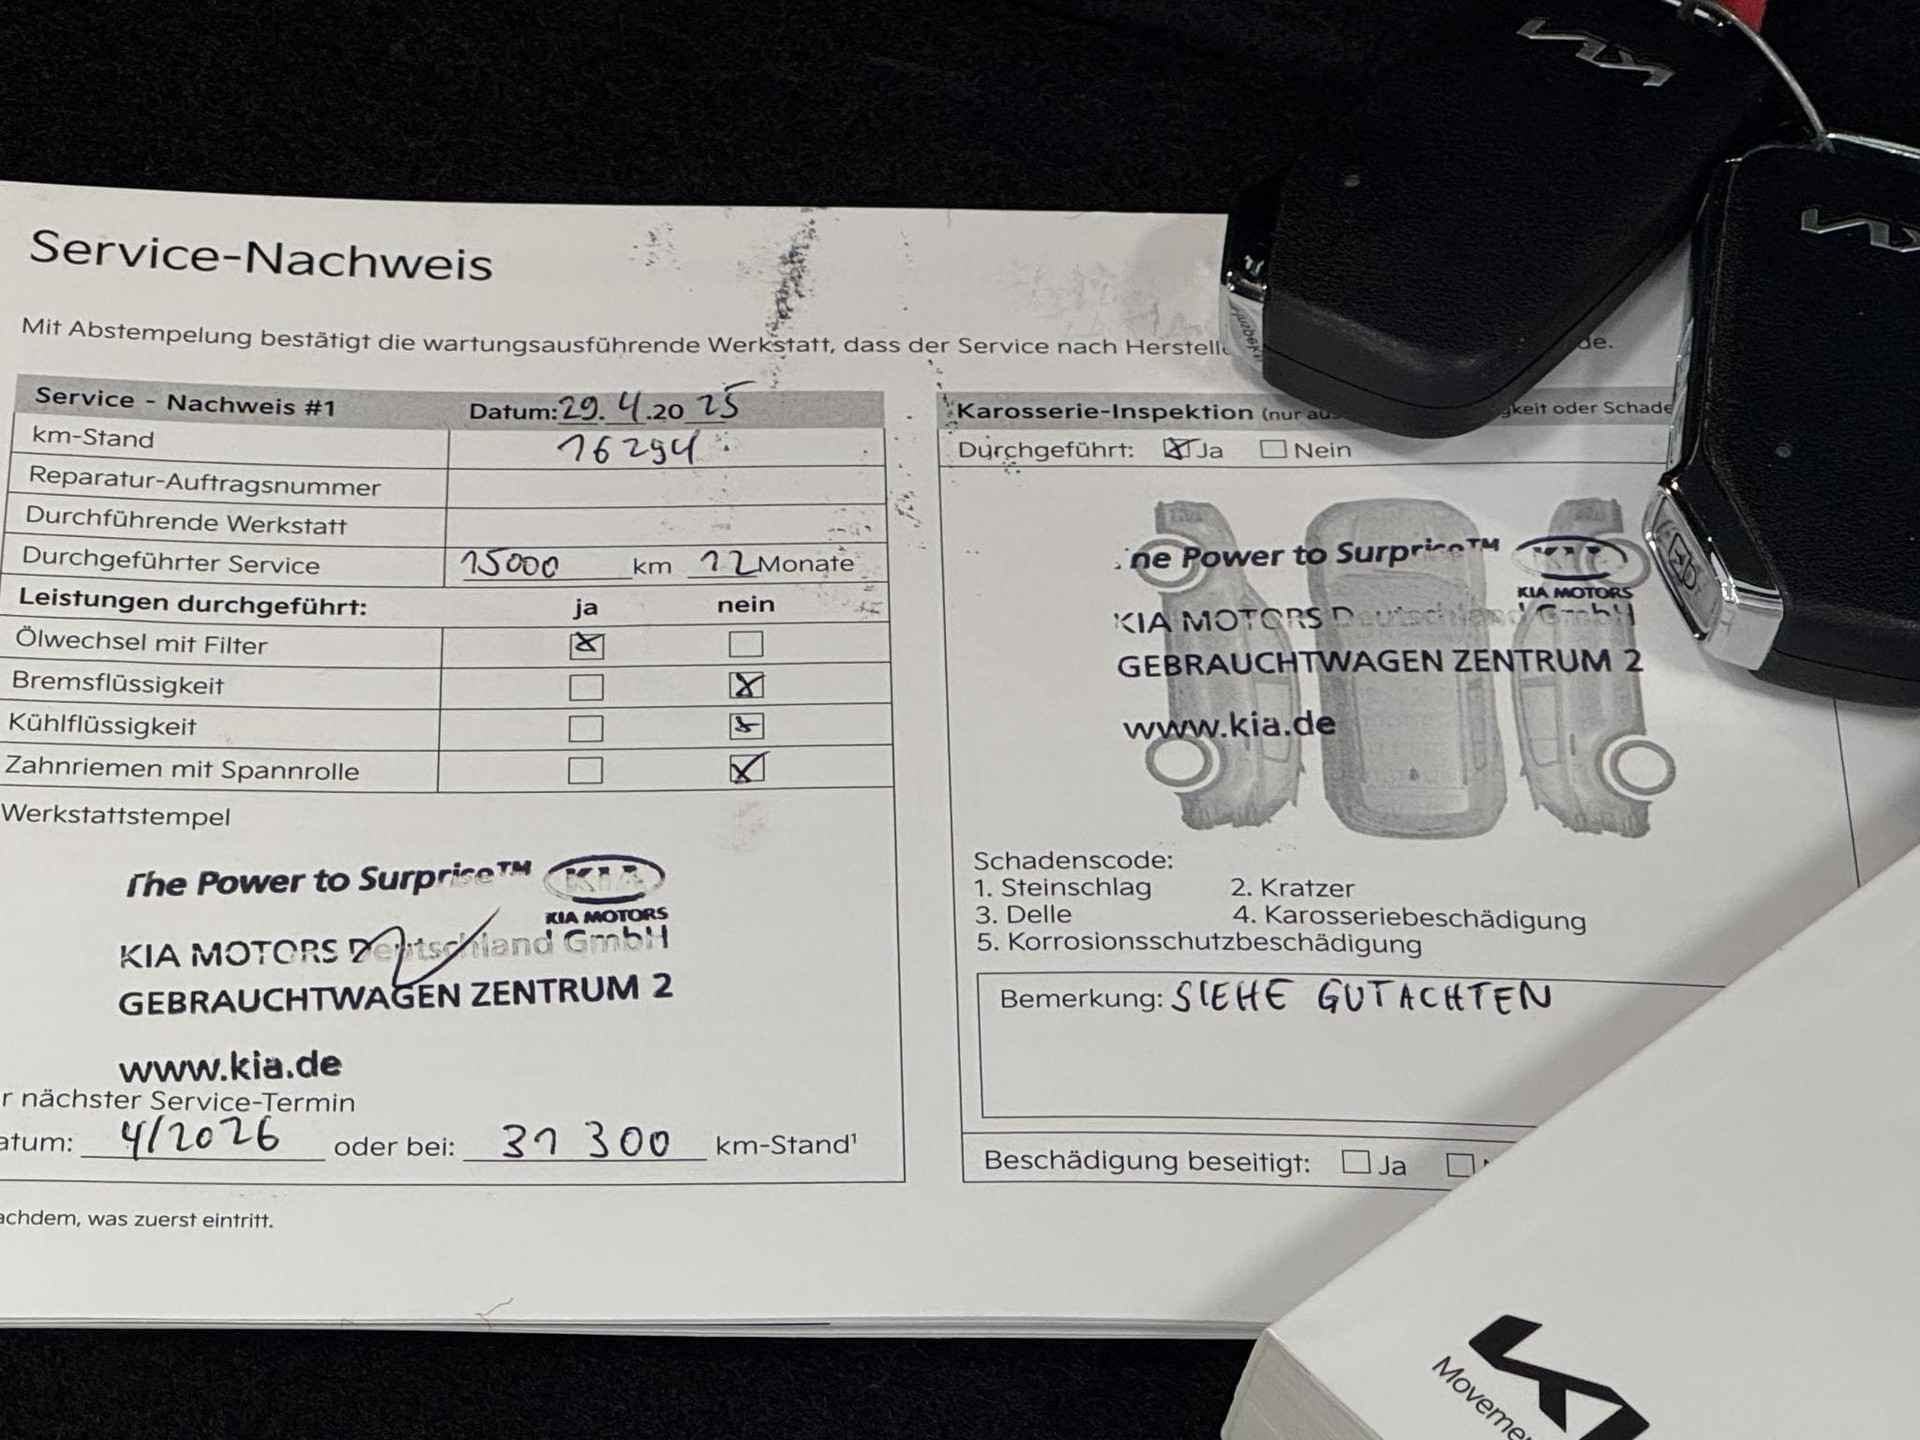 Service-Nachweis
Mit Abstempelung bestätigt die wartungsausführende Werkstatt, dass der Service nach
de.
Service - Nachweis #1 Datum: 29.4.2025
km-Stand 16294
Reparatur-Auftragsnummer
Durchführende Werkstatt
Durchgeführter Service 15000 km 12 Monate
Leistungen durchgeführt: ja nein
Ölwechsel mit Filter
Bremsflüssigkeit
Kühlflüssigkeit
Zahnriemen mit Spannrolle
Werkstattstempel
The Power to Surprise™ KIA
KIA MOTORS
KIA MOTORS Deutschland GmbH
GEBRAUCHTWAGEN ZENTRUM 2
www.kia.de
r nächster Service-Termin
atum: 4/2026 oder bei: 31 300 km-Stand¹
achdem, was zuerst eintritt.
Karosserie-Inspektion (nur au gkeit oder Schade
Durchgeführt: Ja Nein
he Power to Surprise™ KIA
KIA MOTORS
KIA MOTORS Deutschland GmbH
GEBRAUCHTWAGEN ZENTRUM 2
www.kia.de
Schadenscode:
1. Steinschlag 2. Kratzer
3. Delle 4. Karosseriebeschädigung
5. Korrosionsschutzbeschädigung
Bemerkung: SIEHE GUTACHTEN
Beschädigung beseitigt: Ja
KIA
KIA
KIA
Moveme